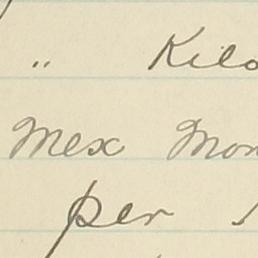 " Kilo
Mex Mon
per